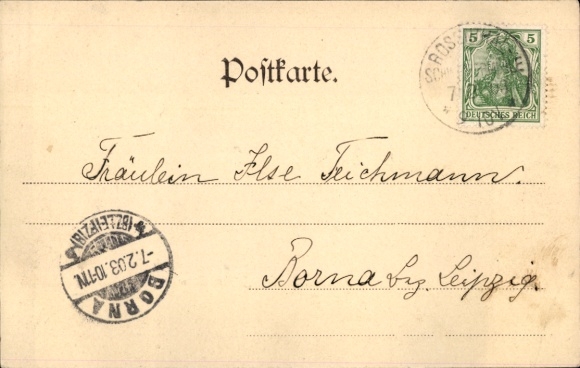 5 5
DEUTSCHES REICH
Postkarte.
Fräulein Ilse Teichmann.
Borna bz Leipzig.
BORNA
(BZ. LEIPZIG)
-7.2.03.10-11N.